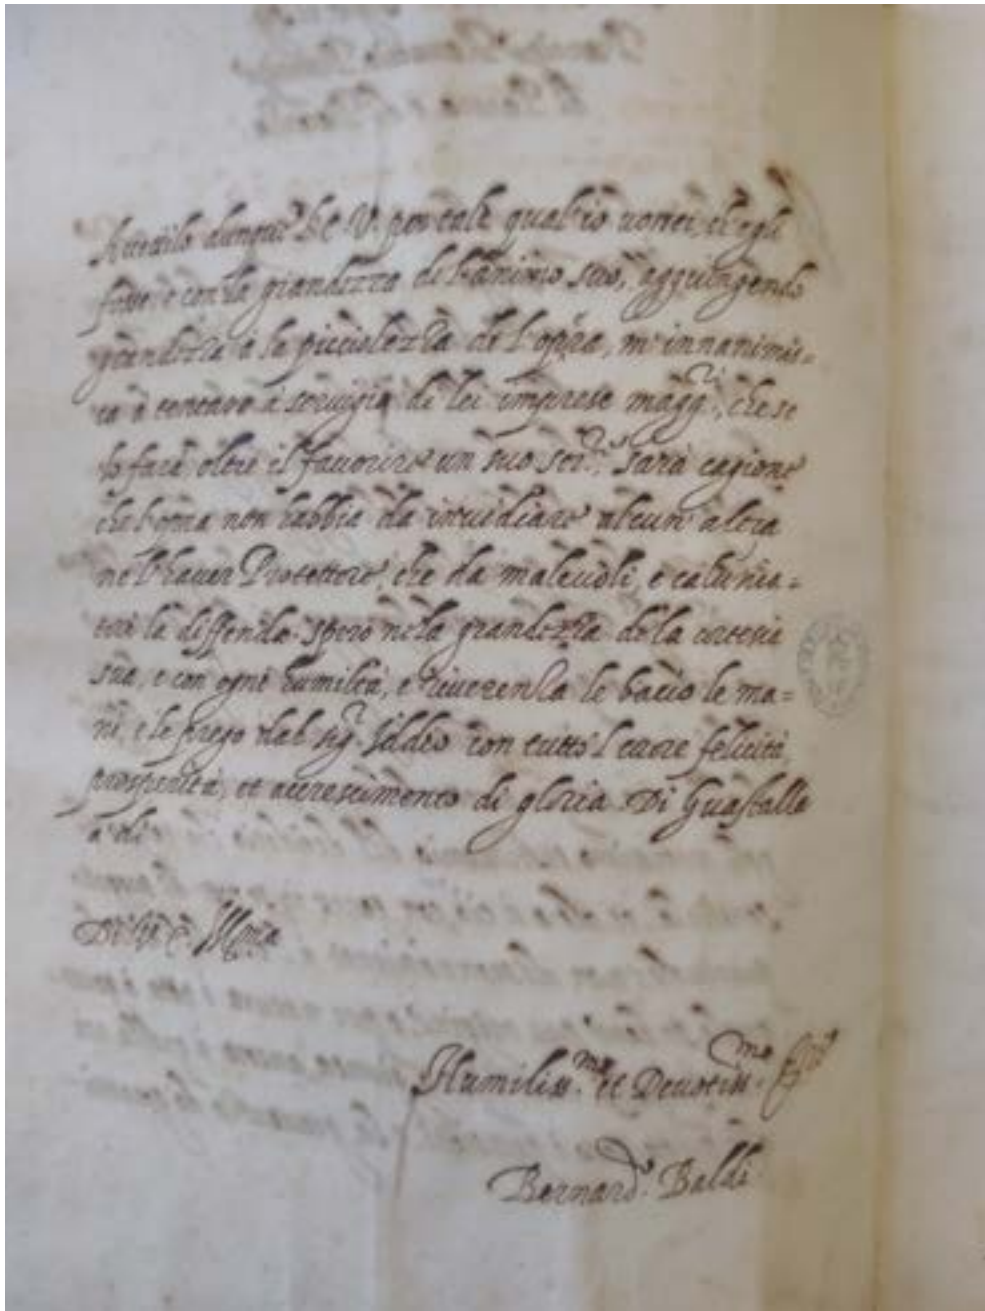 Accettilo dunque l'E. V. per tale qual'io vorrei, ch'egli
fosse e con la grandezza de l'animo suo, aggiungendo
grandezza à la picciolezza de l'opera, m'innanimis-
ca à tentare à servigio di lei imprese magg.ri, che se
lo farà, oltre il favorire un suo ser.re, sarà cagione
che l'opera non habbia da invidiare alcun' altra
ne l'haver Protettore, che da malevoli, e calunia-
tori la diffenda. spero ne la grandezza de la cortesia
sua, e con ogni humiltà, e riverenza le bacio le ma-
ni, e le prego dal sig.r Iddio con tutto 'l cuore felicità,
prosperità, et accrescimento di gloria. Di Guastalla
a' di
Di V. E. Ill.ma
Humiliss.mo et Devotiss.mo
Bernard.o Baldi.